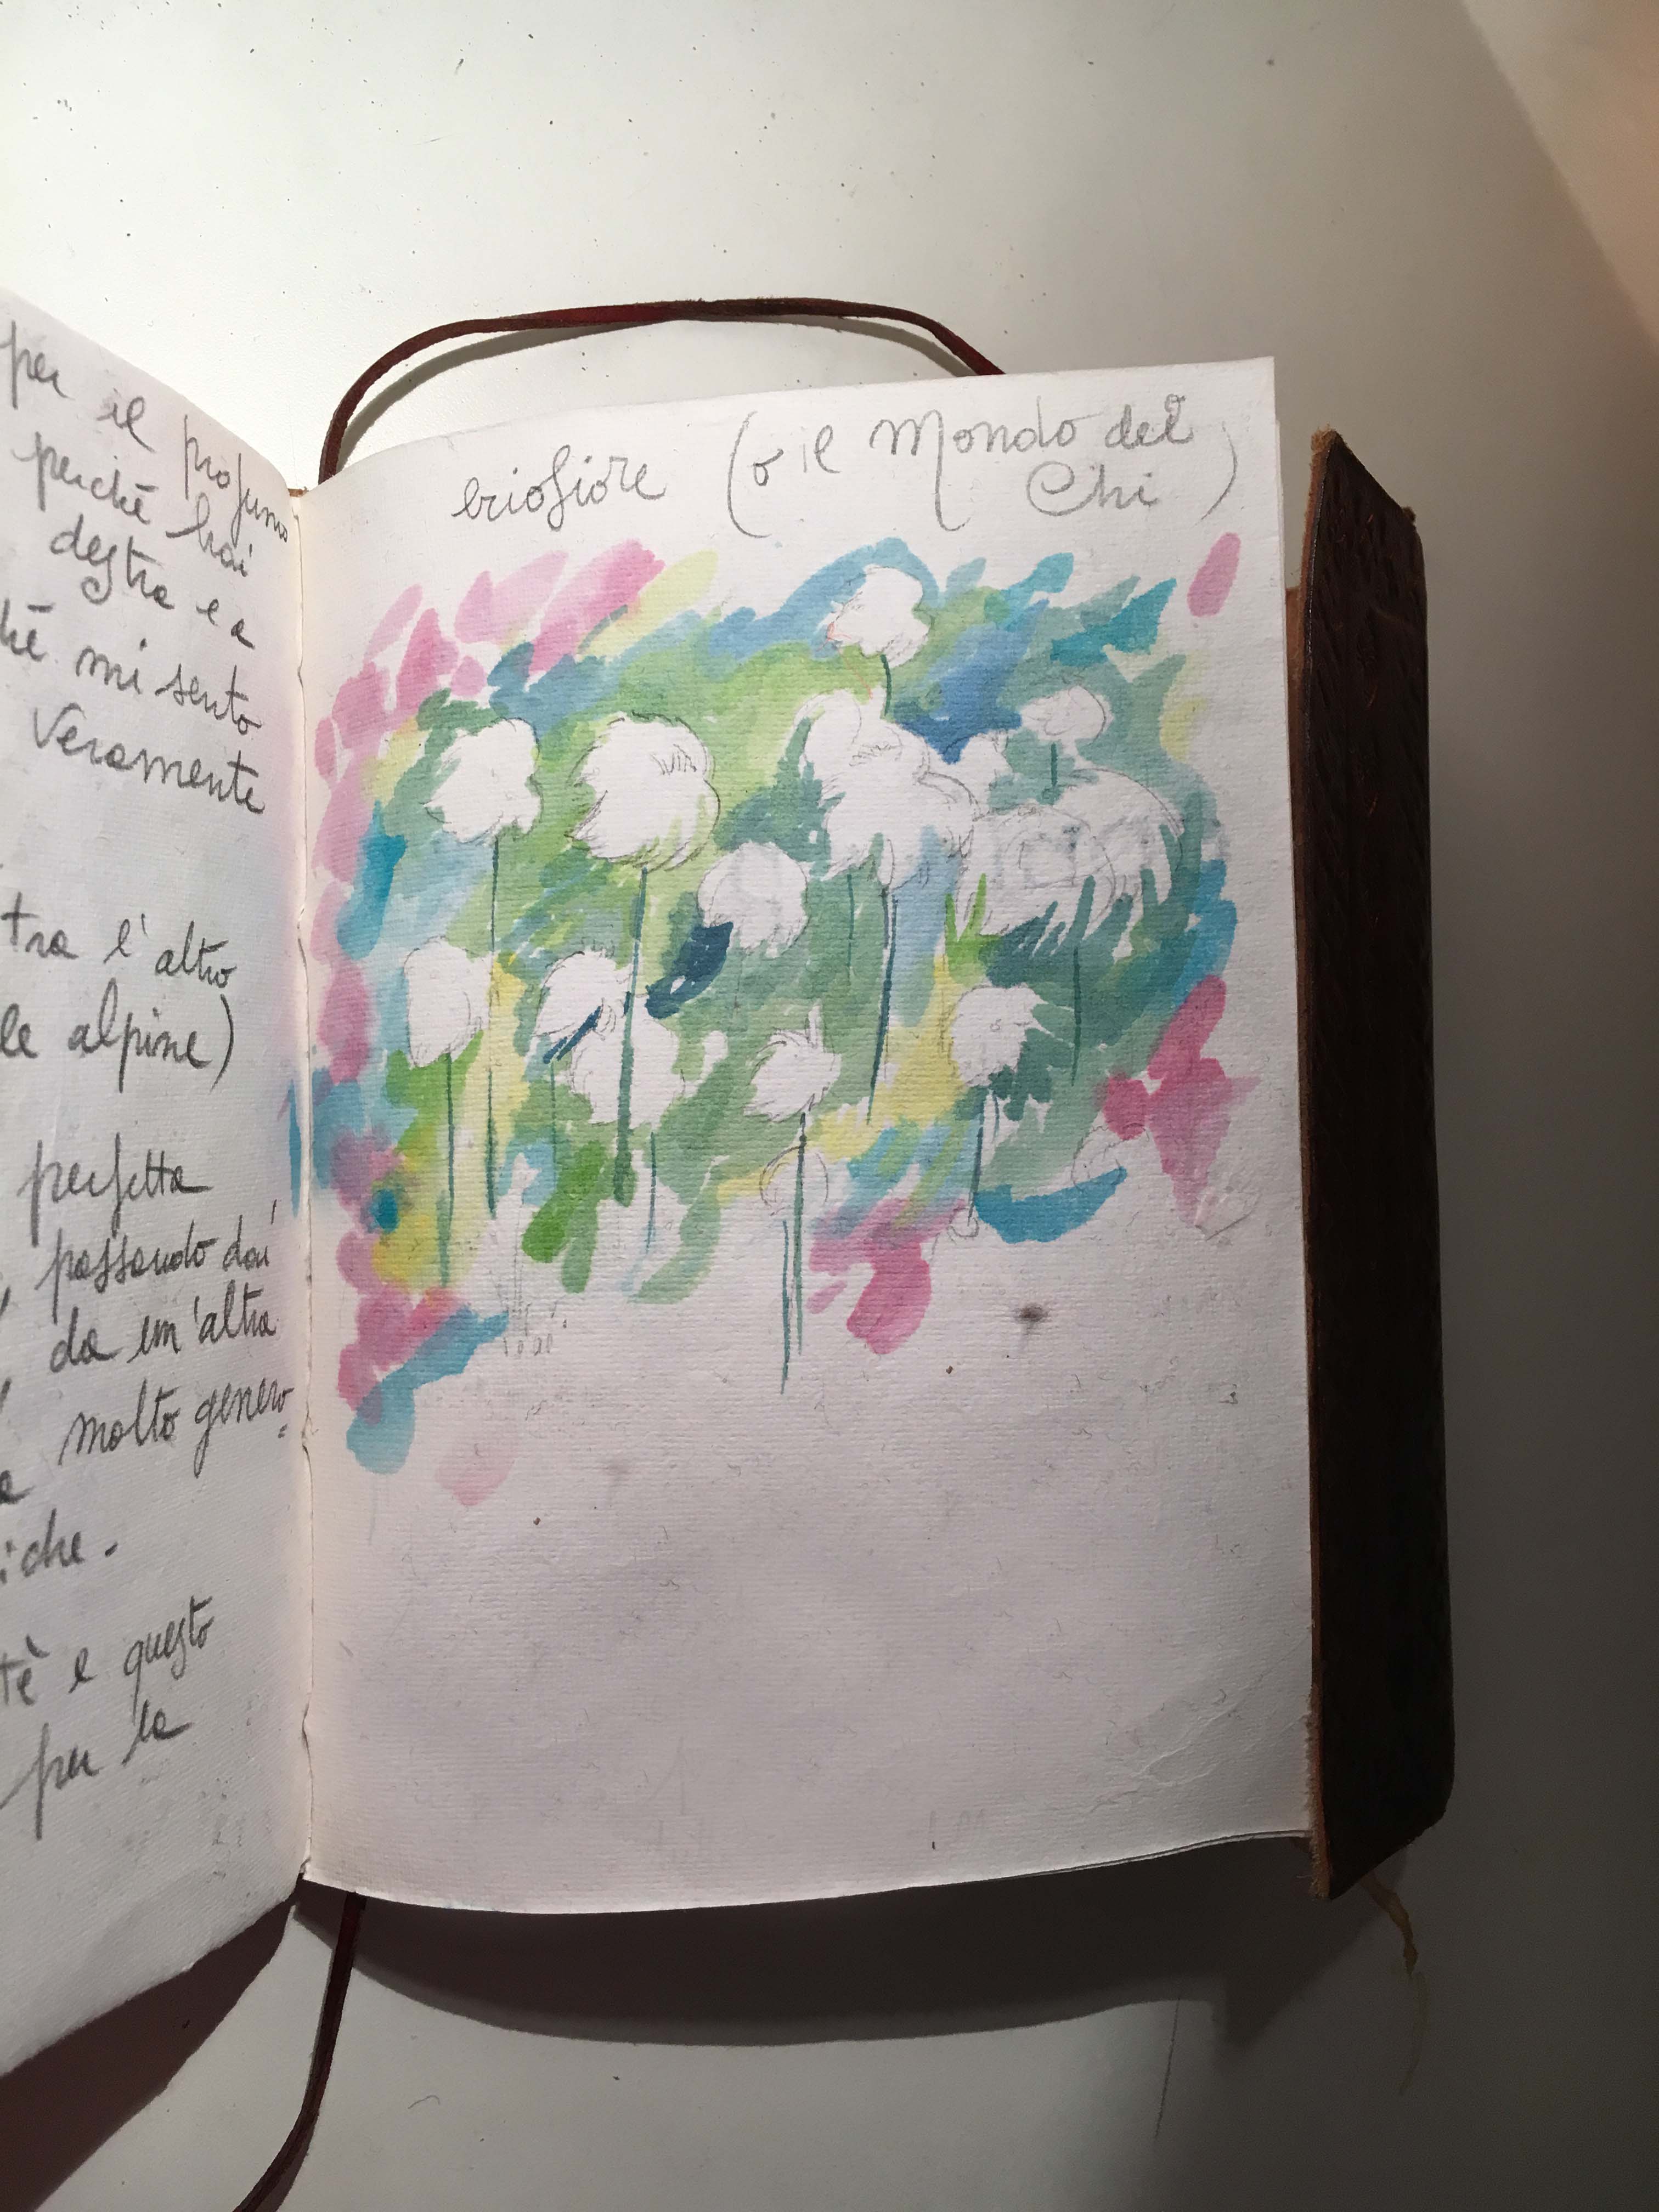 per il profumo
perché hai
destra e a
hé mi sento
veramente
tra l'altro
le alpine)
perfetta
, passando dai
da un'altra
molto genero=
iche.
tè e questo
per la
eriofiore (o il Mondo del
Chi)